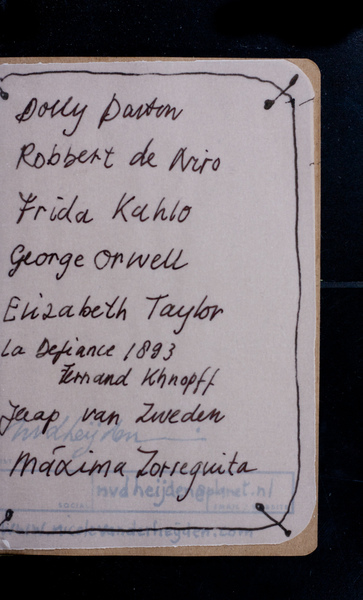 Dolly Parton
Robbert de Niro
Frida Kahlo
George Orwell
Elizabeth Taylor
La Defiance 1893
Fernand Khnopff
Jaap van Zweden
nvdheijden
Máxima Zorreguita
nvdheijden@planet.nl
www.nicolevanderheijden.com